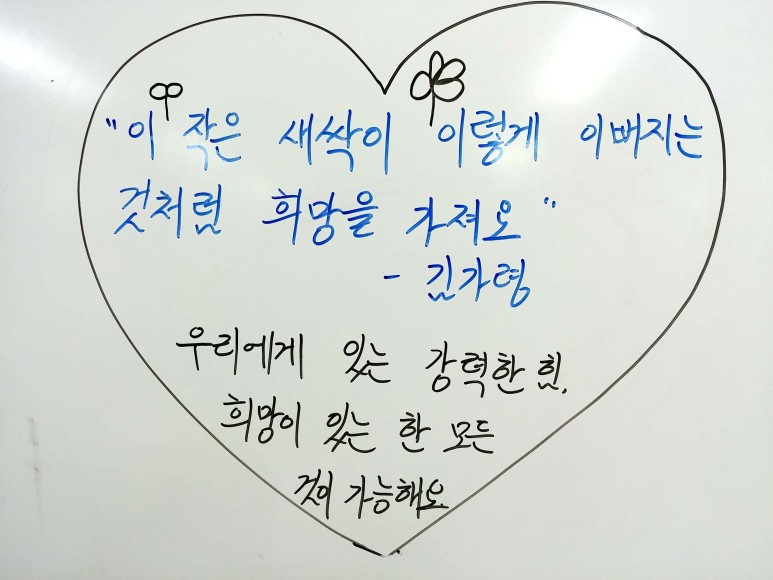 "이 작은 새싹이 이렇게 이뻐지는
것처럼 희망을 가져오"
- 김가령
우리에게 있는 강력한 힘.
희망이 있는 한 모든
것이 가능해요